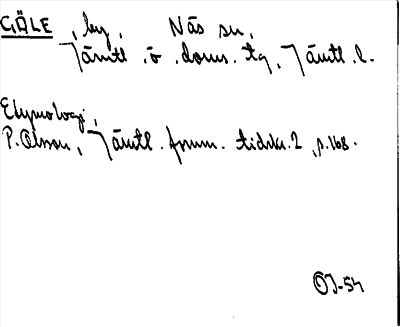 GÄLE, by, Näs sn,
Jämtl. ö. doms. tg, Jämtl. l.
Etymologi,
P. Olsson, Jämtl. fornm. tidskr. 2, p. 168.
OJ-54